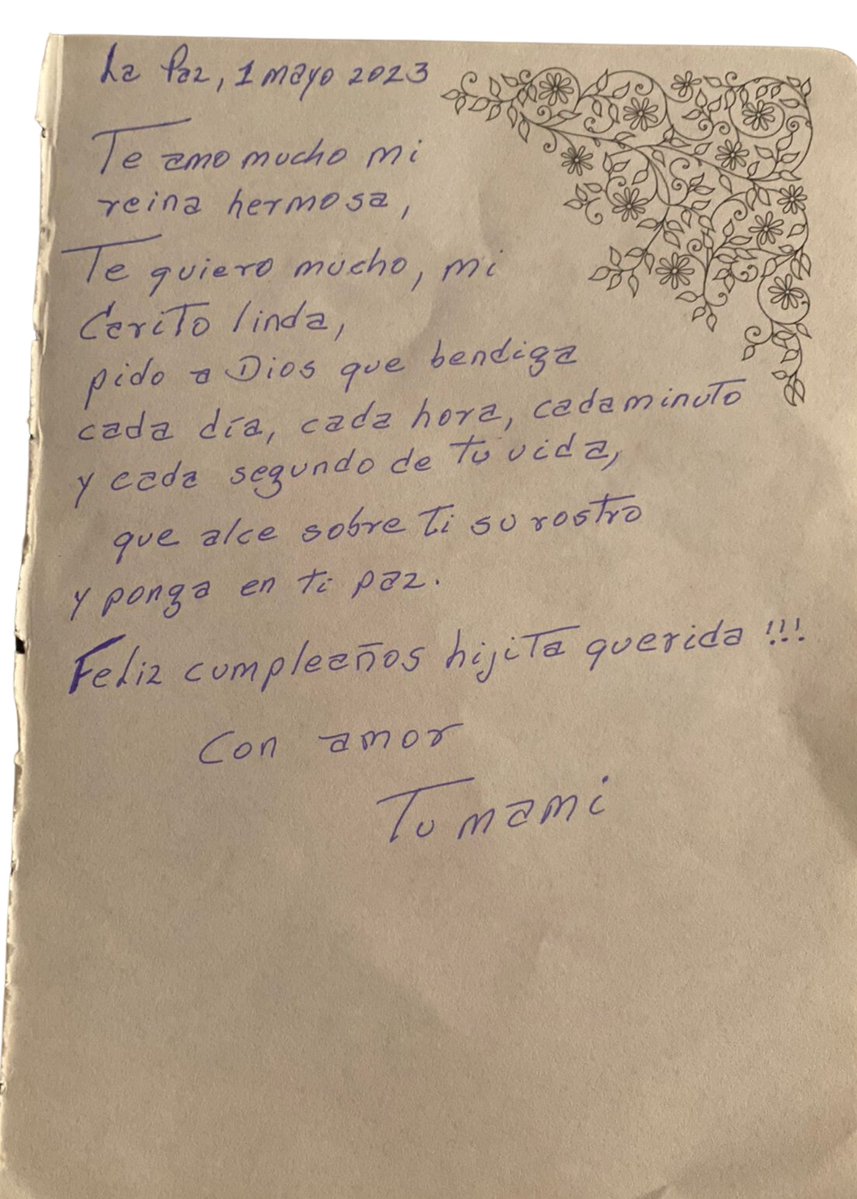 La Paz, 1 mayo 2023
Te amo mucho mi
reina hermosa,
Te quiero mucho, mi
Carito linda,
pido a Dios que bendiga
cada día, cada hora, cada minuto
y cada segundo de tu vida,
que alce sobre ti su rostro
y ponga en ti paz.
Feliz cumpleaños hijita querida !!!
Con amor
Tu mami